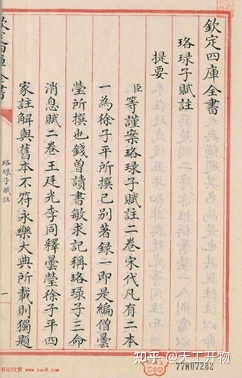 欽定四庫全書
珞琭子賦註
提要
臣等謹案珞琭子賦註二卷宋代凡有二本
一為徐子平所撰已别著録一即是編僧曇
瑩所撰也錢曽讀書敏求記稱珞琭子三命
消息賦二卷王廷光李同釋曇瑩徐子平四
家註解與舊本不符永樂大典所載則獨題
欽定四庫全書
珞琭子賦註
一
知乎 @天工开物
77W07282